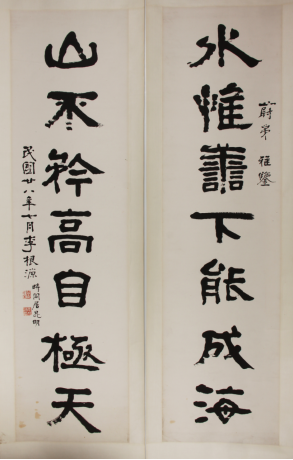 水惟善下能成海
蔚弟雅鑒
山不矜高自極天
民國廿八年七月李根源
時同居昆明